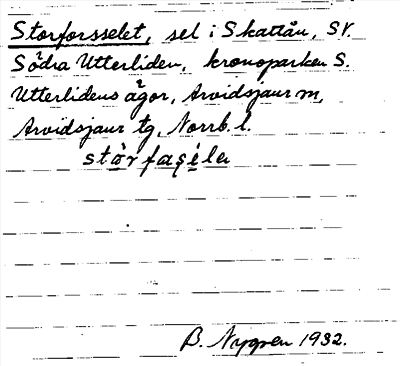 Storforsselet, sel i Skattån, SV.
Södra Utterliden, kronoparken S.
Utterlidens ågor, Arvidsjaur m,
Arvidsjaur tg, Norrb. l.
stårfaséla
B. Nygren 1932.